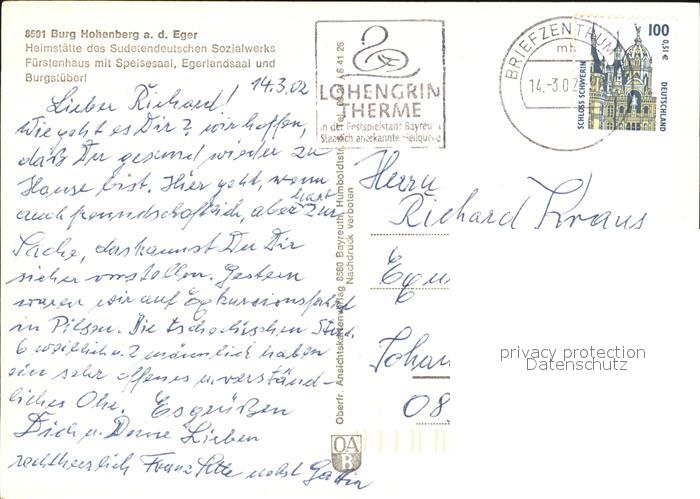 8591 Burg Hohenberg a. d. Eger
Heimstätte des Sudetendeutschen Sozialwerks
Fürstenhaus mit Speisesaal, Egerlandsaal und
Burgstüberl
14.3.02
Lieber Richard!
Wie geht es Dir? Wir hoffen,
daß Du gesund wieder zu
Hause bist. Hier geht, wenn
auch freundschaftlich, aber hart zur
Sache, das kannst Du Dir
sicher vorstellen. Gestern
waren wir auf Exkursionsfahrt
in Pilsen. Die tschechischen Stud.
6 weiblich u. 2 männlich haben
ein sehr offenes u. verständ-
liches Ohr. Es grüßen
Dich u. Deine Lieben
recht herzlich Franz nebst Gattin
Oberfr. Ansichtskartenverlag 8580 Bayreuth, Humboldtstr.
Nachdruck verboten
OA
B
LOHENGRIN
THERME
in der Festspielstadt Bayreuth
Staatlich anerkannte Heilquelle
BRIEFZENTRUM
mb
14.-3.02
100
0,51 €
SCHLOSS SCHWERIN
DEUTSCHLAND
Herrn
Richard Kraus
Johan
08
privacy protection
Datenschutz